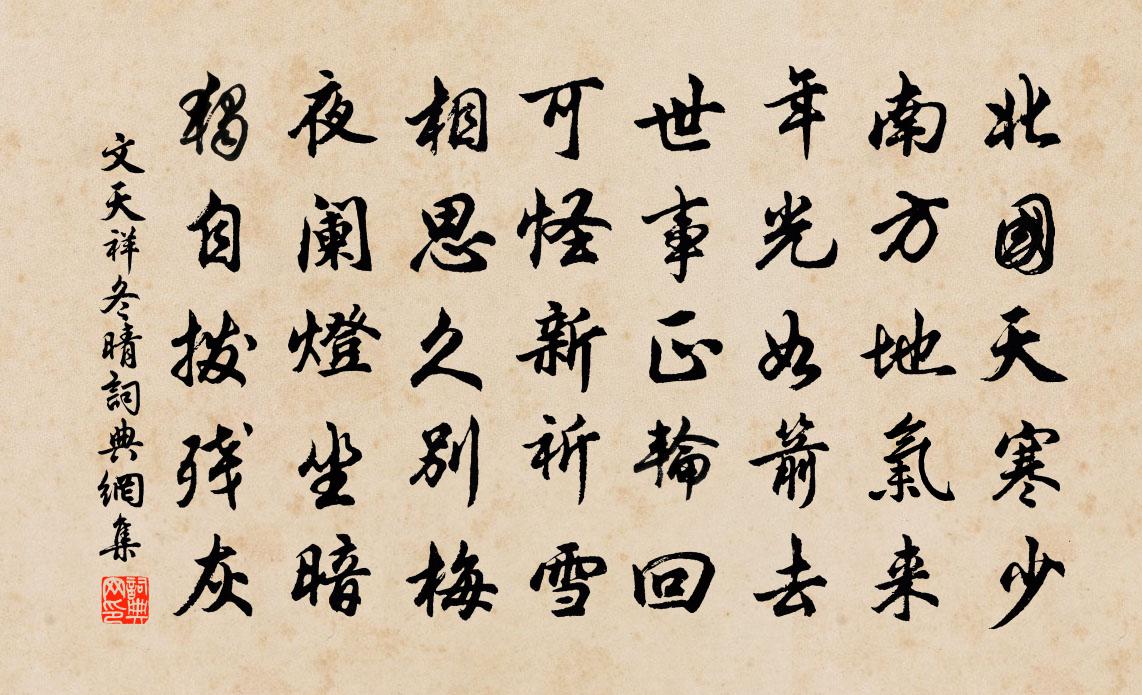 北國天寒少
南方地氣来
年光如箭去
世事正輪回
可怪新祈雪
相思久別梅
夜闌燈坐暗
獨自撥残灰
文天祥冬晴詞典網集
詞典网印